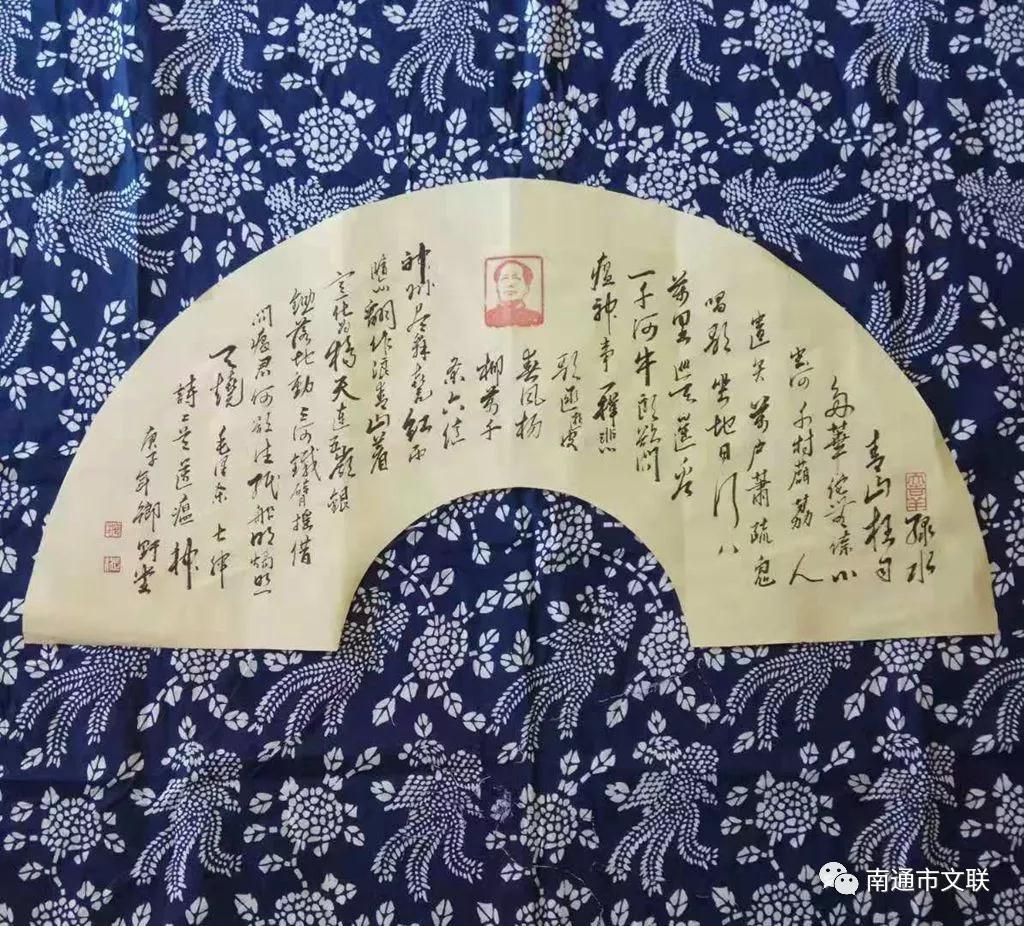 绿水
青山枉自
多華佗無奈小
虫何千村薜荔人
遺矢萬户蕭疏鬼
唱歌坐地日行八
萬里巡天遥看
一千河牛郎欲問
瘟神事一樣悲
歡逐逝波
春风杨
柳萬千
条六億
神州尽舜堯红雨
随心翻作浪青山着
意化为橋天連五嶺銀
鋤落地動三河鐵臂摇借
問瘟君何欲往纸船明燭照
天燒 毛泽东 七律
詩二首送瘟神
庚子年鄉野堂
南通市文联